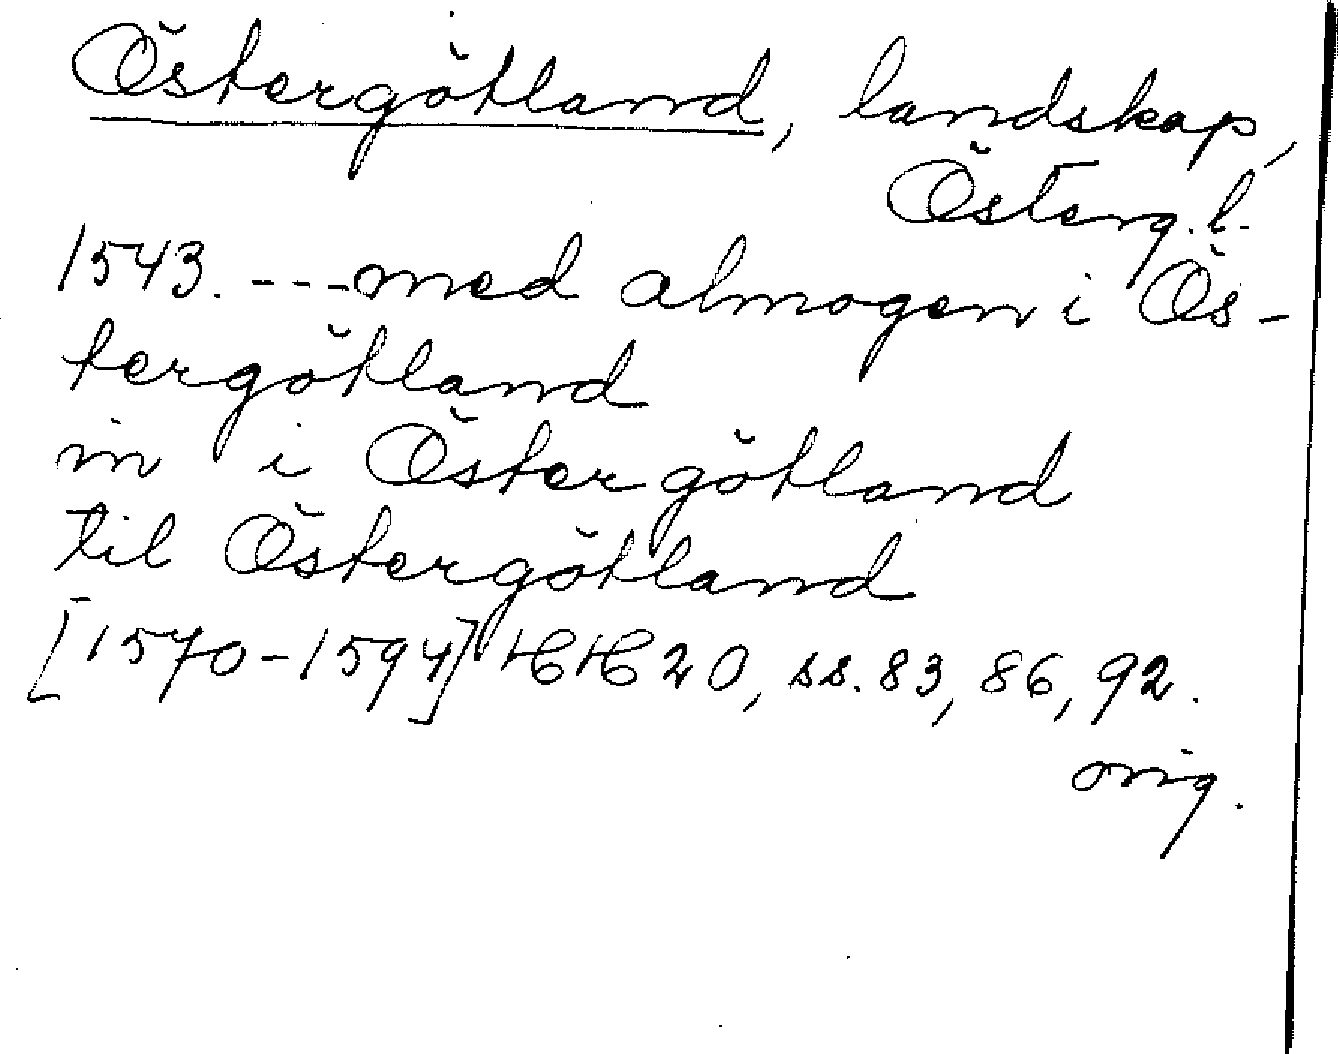 Östergötland, landskap,
Österg. l.
1543. --- med almogen i Ös-
tergötland
in i Östergötland
til Östergötland
[1570-1594] HH 20, ss. 83, 86, 92.
orig.